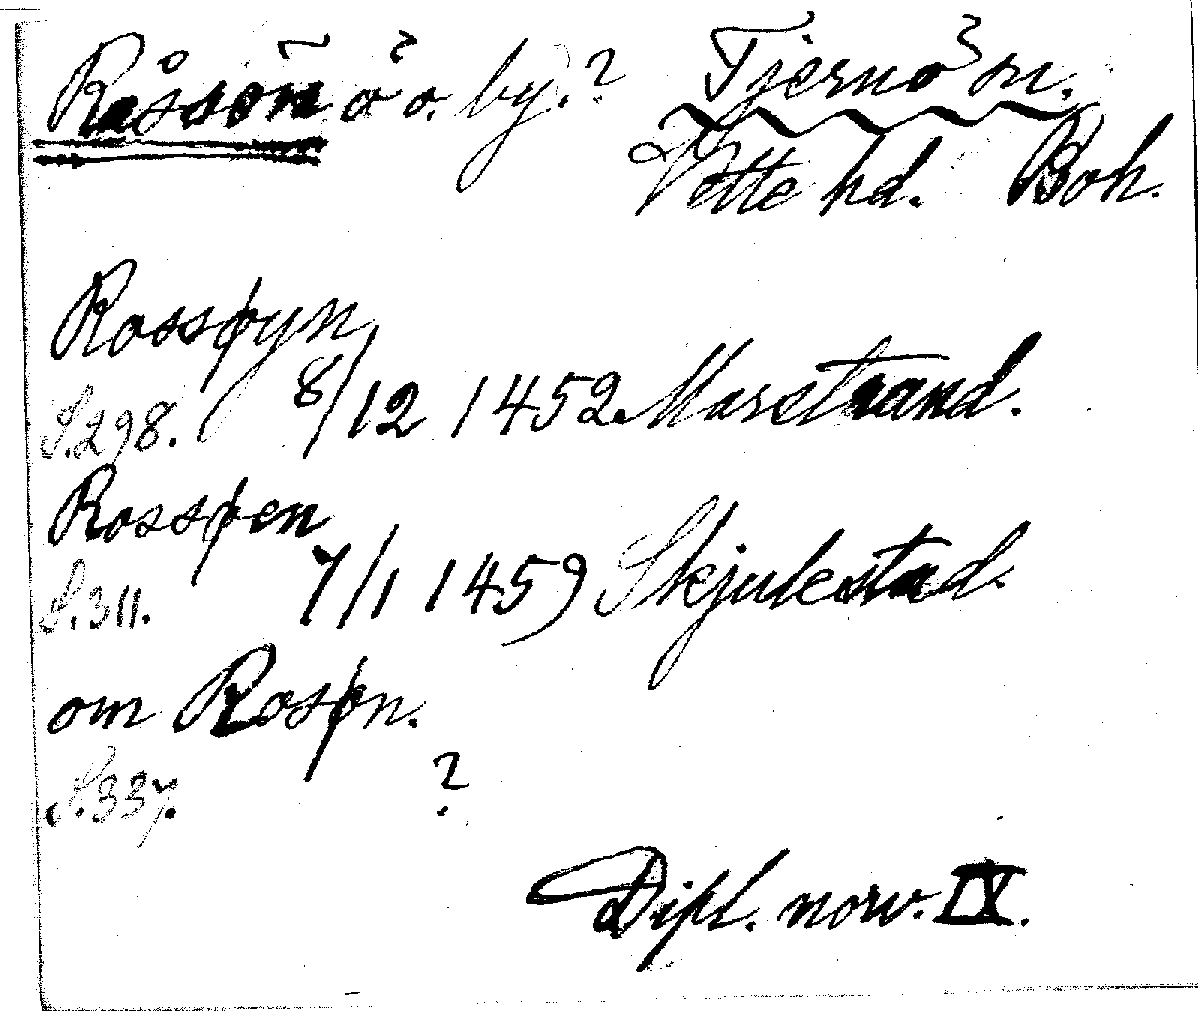 Råssön ö o. by.? Tjernö sn.
Vette hd. Boh.
Rossøyn
S.298. 8/12 1452 Marstrand.
Rossøen
S.311. 7/1 1459 Skjulestad.
om Rosøn.
S.337. ?
Dipl. norv. IX.